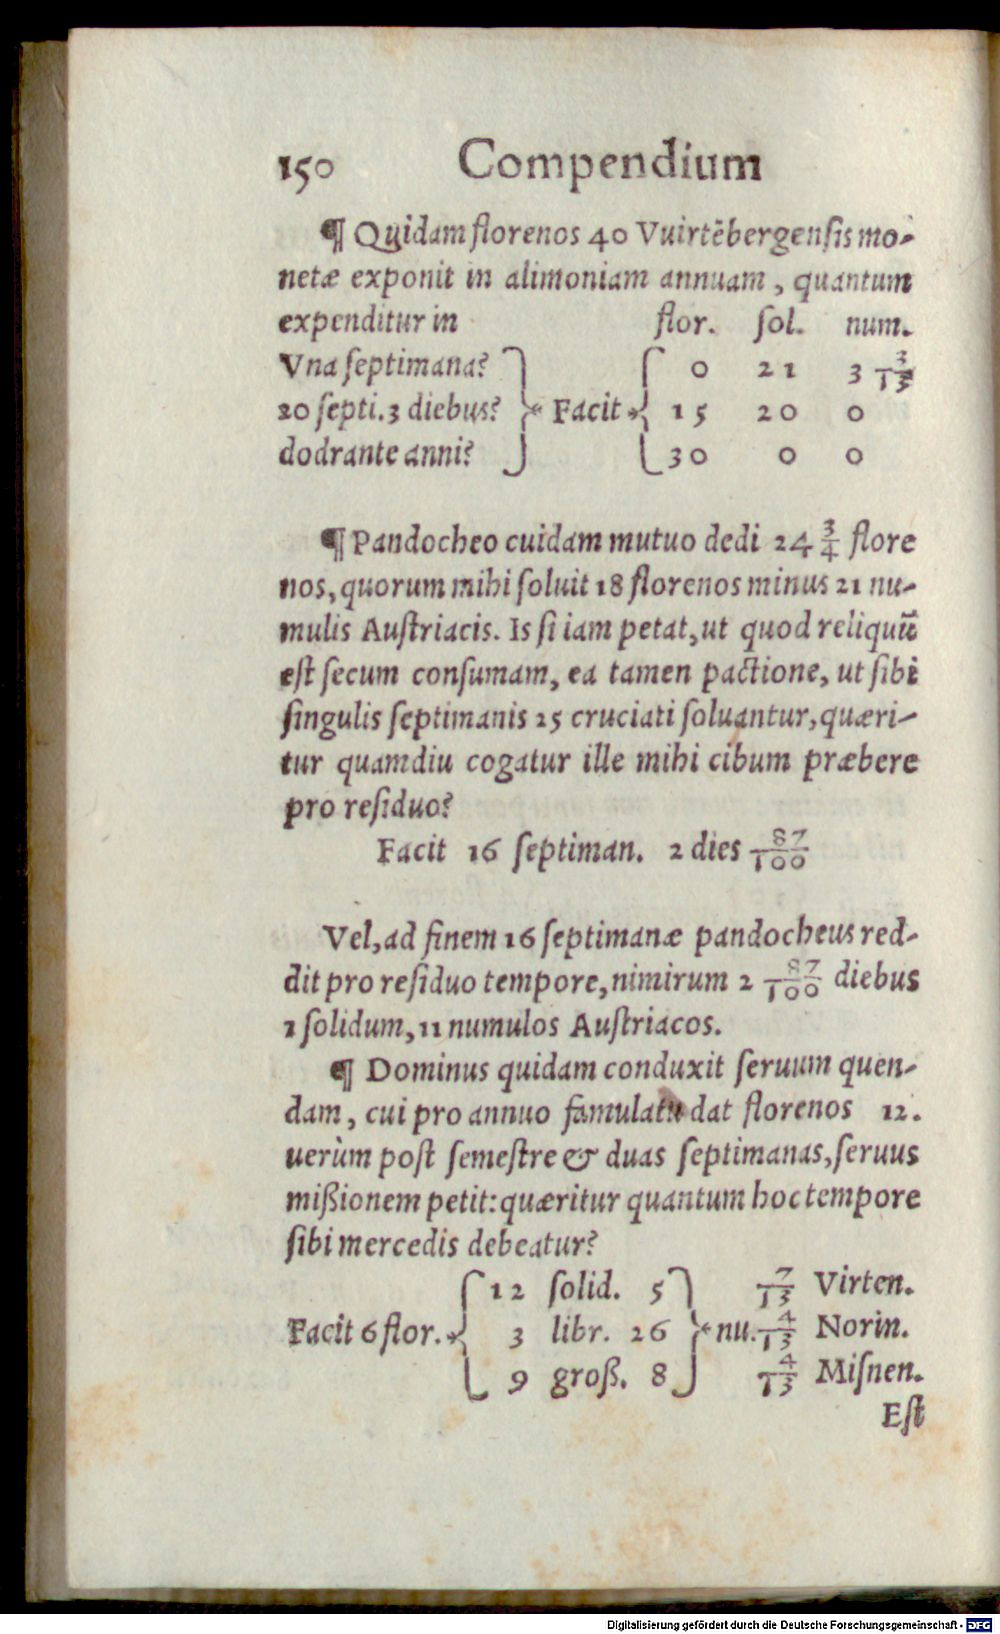 150 Compendium
¶ Quidam florenos 40 Vuirtẽbergenſis mo-
netæ exponit in alimoniam annuam, quantum
expenditur in flor. ſol. num.
Vna ſeptimana? 0 21 3 3/13
20 ſepti. 3 diebus? Facit 15 20 0
dodrante anni? 30 0 0
¶ Pandocheo cuidam mutuo dedi 24 3/4 flore
nos, quorum mihi ſoluit 18 florenos minus 21 nu-
mulis Auſtriacis. Is ſi iam petat, ut quod reliquũ
eſt ſecum conſumam, ea tamen pactione, ut ſibi
ſingulis ſeptimanis 25 cruciati ſoluantur, quæri-
tur quamdiu cogatur ille mihi cibum præbere
pro reſiduo?
Facit 16 ſeptiman. 2 dies 87/100
Vel, ad finem 16 ſeptimanæ pandocheus red-
dit pro reſiduo tempore, nimirum 2 87/100 diebus
1 ſolidum, 11 numulos Auſtriacos.
¶ Dominus quidam conduxit ſeruum quen-
dam, cui pro annuo famulatu dat florenos 12.
uerùm poſt ſemeſtre & duas ſeptimanas, ſeruus
mißionem petit: quæritur quantum hoc tempore
ſibi mercedis debeatur?
12 ſolid. 5 7/13 Virten.
Facit 6 flor. 3 libr. 26 nu. 4/13 Norin.
9 groß. 8 4/13 Miſnen.
Eſt
Digitalisierung gefördert durch die Deutsche Forschungsgemeinschaft - DFG